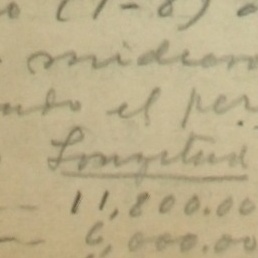 o (1-8) a
midieron
ando el per
Longitud
11,800.00
6,000.00